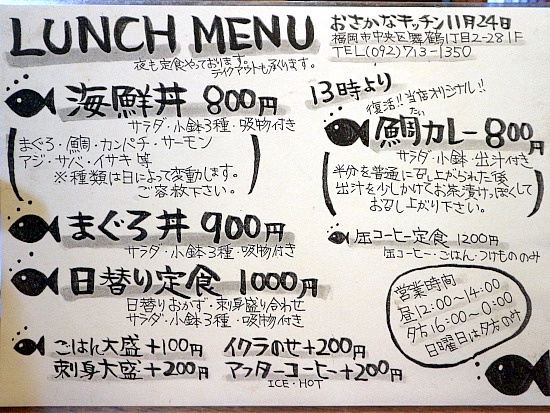 LUNCH MENU
夜も定食やっております。
テイクアウトも承ります。
おさかなキッチン11月24日
福岡市中央区舞鶴1丁目2-28 1F
TEL(092)713-1350
海鮮丼 800円
サラダ・小鉢3種・吸物付き
まぐろ・鯛・カンパチ・サーモン
アジ・サバ・イサキ 等
※種類は日によって変動します。
ご容赦下さい。
まぐろ丼 900円
サラダ・小鉢3種・吸物付き
日替り定食 1000円
日替りおかず・刺身盛り合わせ
サラダ・小鉢3種・吸物付き
ごはん大盛+100円 イクラのせ+200円
刺身大盛+200円 アフターコーヒー+200円
ICE・HOT
13時より
復活!!当店オリジナル!!
たい
鯛カレー800円
サラダ・小鉢・出汁付き
半分を普通に召し上がられた後
出汁を少しかけてお茶漬けっぽくして
お召し上がり下さい。
缶コーヒー定食 1200円
缶コーヒー・ごはん・つけもののみ
営業時間
昼12:00~14:00
夕方16:00~0:00
日曜日は夕方のみ